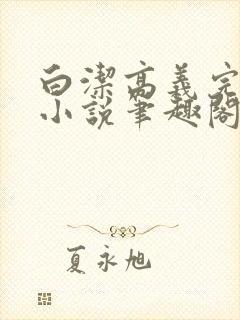 白潔高義完
小說筆趣閣
夏永旭